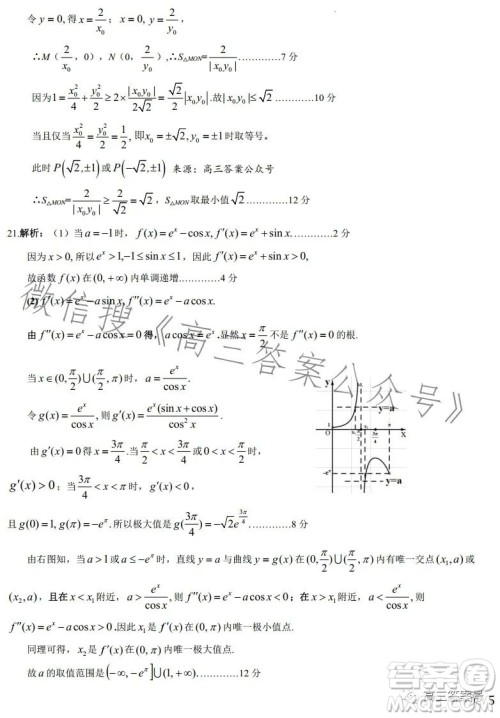 令 y=0,得 x=2/x₀ ; x=0, y=2/y₀ ,
∴M（2/x₀，0），N（0，2/y₀）,∴S△MON=2/|x₀y₀|…………7分
因为1=x₀²/4+y₀²/2≥2×|x₀y₀|/2√2=√2/2|x₀y₀|.故|x₀y₀|≤√2…………10分
当且仅当 x₀²/4=y₀²/2=1/2, 即x₀=±√2, y₀=±1时取等号。
此时 P(√2,±1) 或 P(−√2,±1) 来源：高三答案公众号
∴S△MON=2/|x₀y₀|≥2/√2=√2, S△MON 取最小值√2…………12分
21.解析：（1）当a=−1时，f(x)=eˣ−cosx, f′(x)=eˣ+sinx.…………2分
因为x>0, 所以eˣ>1,−1≤sinx≤1，因此 f′(x)=eˣ+sinx>0,
故函数 f(x)在(0,+∞)内单调递增…………4分
(2) f′(x)=eˣ−asinx, f″(x)=eˣ−acosx.
由 f″(x)=eˣ−acosx=0得，acosx=eˣ.显然x=π/2不是 f″(x)=0的根.
当x∈(0,π/2)∪(π/2,π)时，a=eˣ/cosx.
令g(x)=eˣ/cosx, 则g′(x)=eˣ(sinx+cosx)/cos²x.
由g′(x)=0得x=3π/4.当π/2<x<3π/4或0<x<π/2时，
g′(x)>0；当3π/4<x<π时，g′(x)<0,
且g(0)=1,g(π)=−e^π.所以极大值是g(3π/4)=−√2e^(3π/4)…………8分
由右图知，当a>1或a≤−e^π时，直线y=a与曲线y=g(x)在(0,π/2)∪(π/2,π)内有唯一交点(x₁,a)或
(x₂,a)，且在x₁附近，当x<x₁时，a>eˣ/cosx, 则f″(x)=eˣ−acosx<0；在x₁附近，当x>x₁时，a<eˣ/cosx,则
f″(x)=eˣ−acosx>0.因此x₁是f′(x)在(0,π)内唯一极小值点.
同理可得，x₂是f′(x)在(0,π)内唯一极大值点.
故a的取值范围是(−∞,−e^π]∪(1,+∞).…………12分
y
y=a
x
-e^π
y=a
微信搜《高三答案公众号》
高三答案
答案圈
5